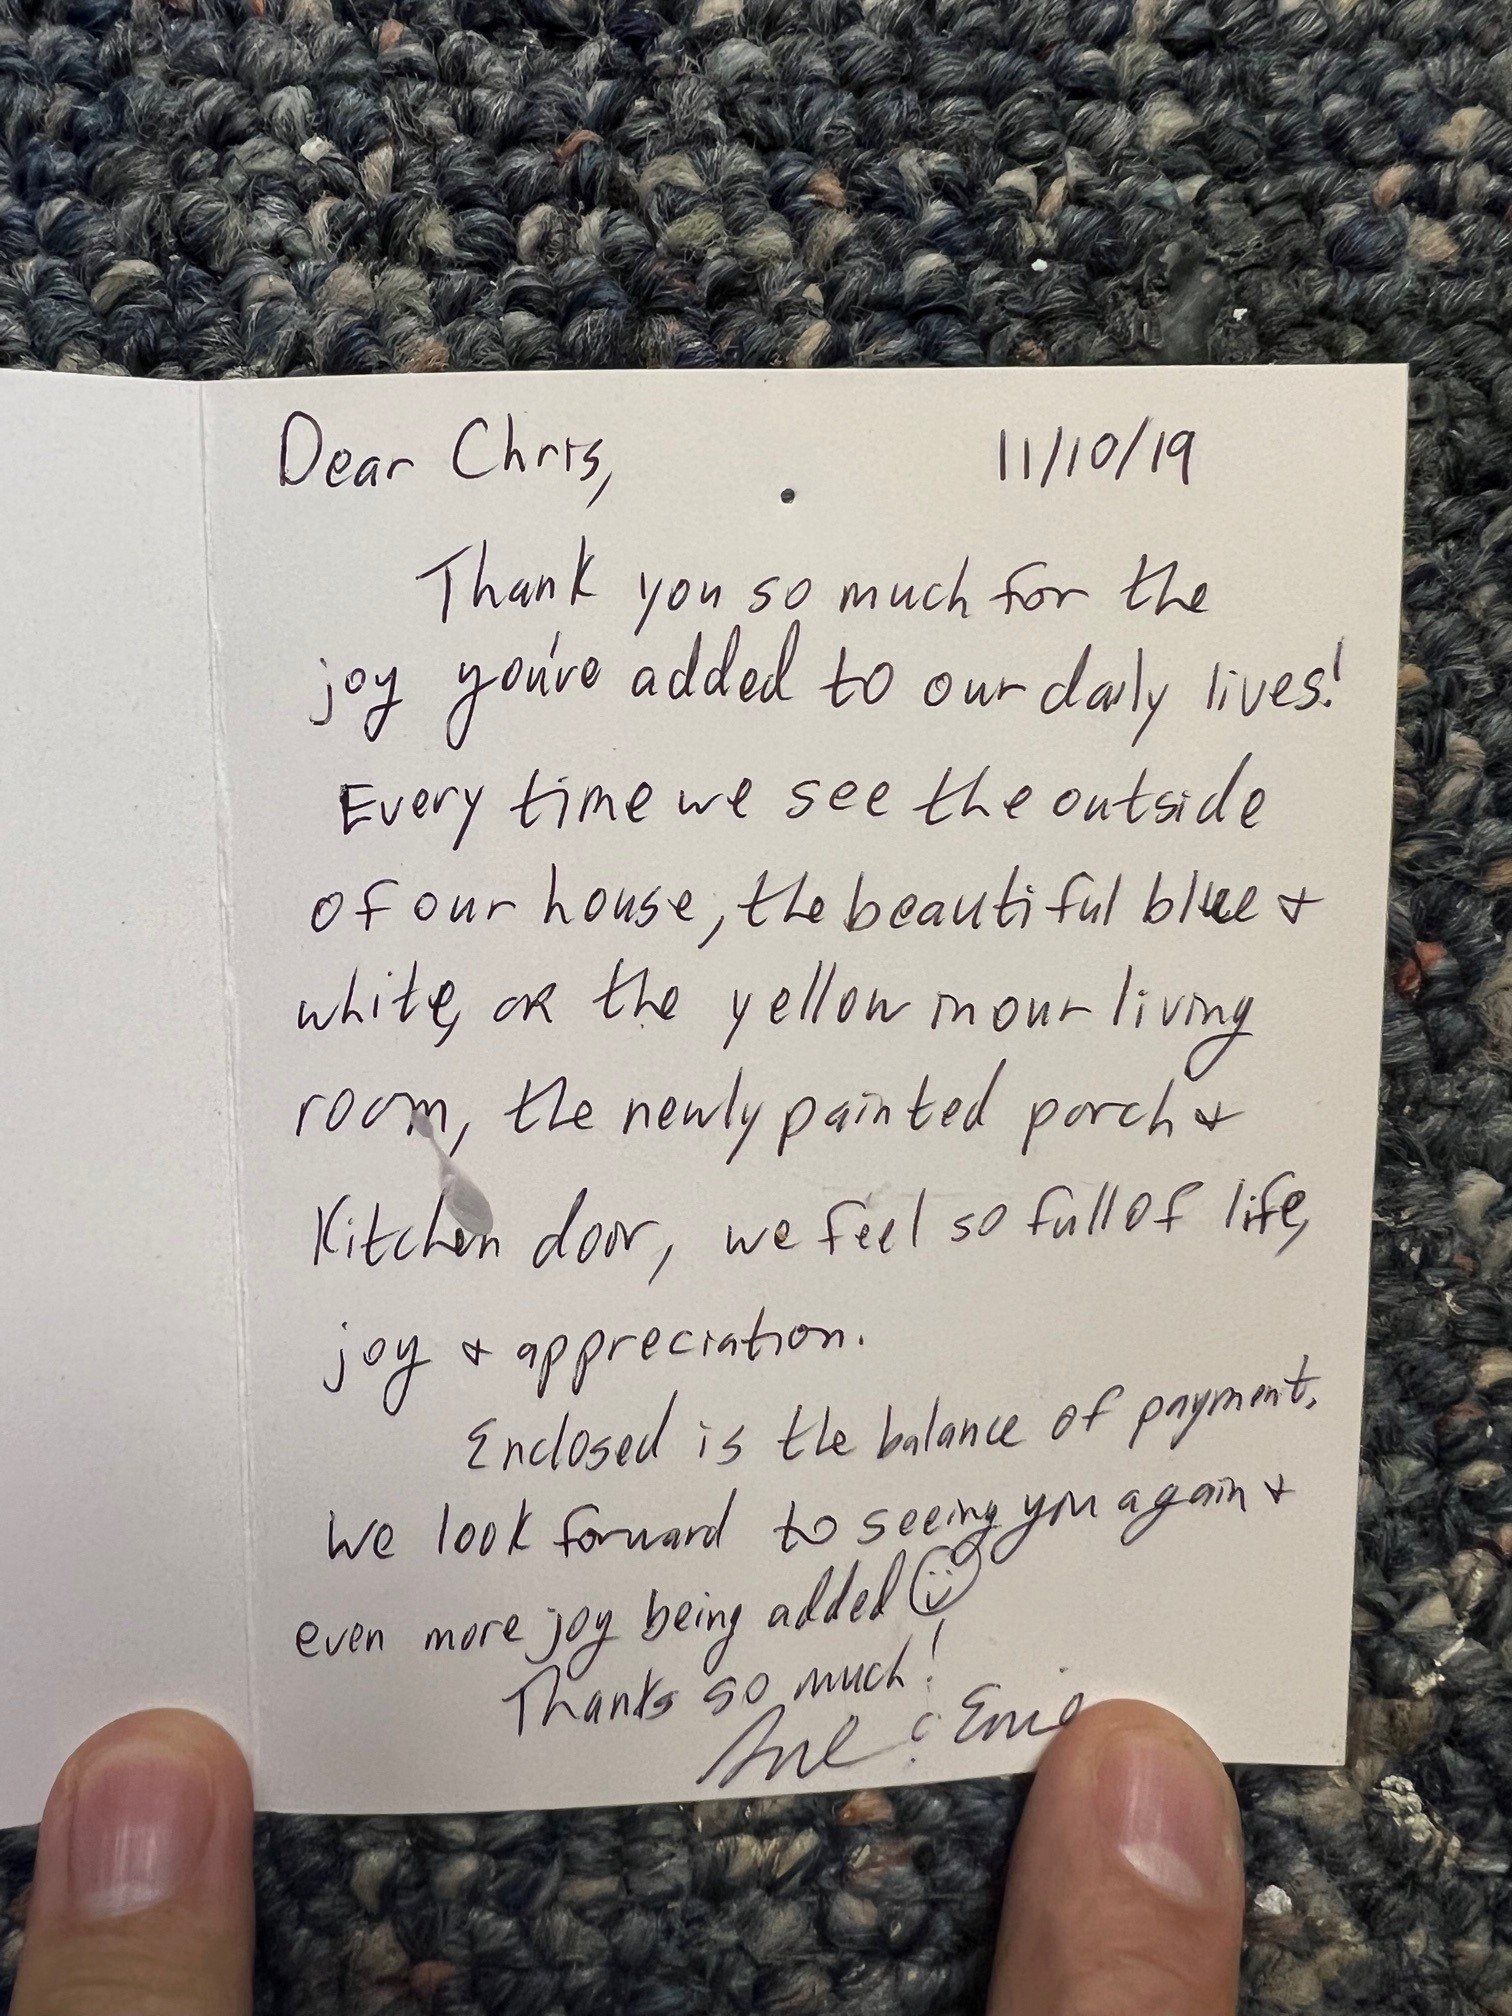 Dear Chris, 11/10/19
Thank you so much for the
joy you've added to our daily lives!
Every time we see the outside
of our house, the beautiful blue +
white, or the yellow in our living
room, the newly painted porch +
Kitchen door, we feel so full of life,
joy + appreciation.
Enclosed is the balance of payment.
We look forward to seeing you again +
even more joy being added
Thanks so much!